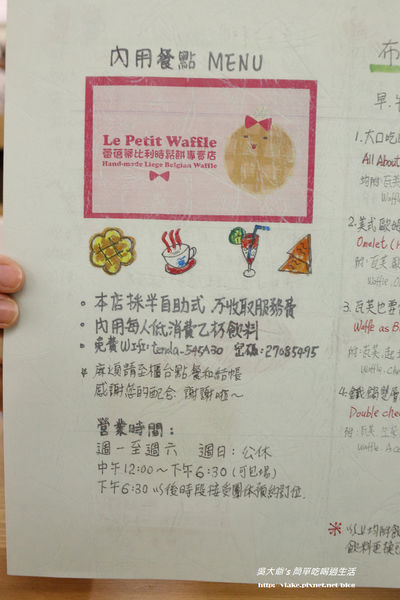 內用餐點 MENU
Le Petit Waffle
蕾蓓蒂比利時鬆餅專賣店
Hand-made Liege Belgian Waffle
本店採半自助式,不收取服務費
內用每人低消費乙杯飲料
免費WIFI: tenda-545A30 密碼: 27085495
麻煩請至櫃台點餐和結帳
感謝您的配合 謝謝啦~
營業時間:
週一至週六 週日:公休
中午12:00~下午6:30 (可包場)
下午6:30以後時段接受團体預約訂位.
布
早.
1.大口吃
All About
Waffle
2.美式歐
Omelet (
附:瓦芙
Waffle.
3.瓦芙也
Waffle as B
附:瓦芙.起
Waffle. Che
4.鐵鍋雙層
Double chee
附:瓦芙
Waffle. A ce
※以上均附飲
飲料更換
吳大爺's 簡單吃喝過生活